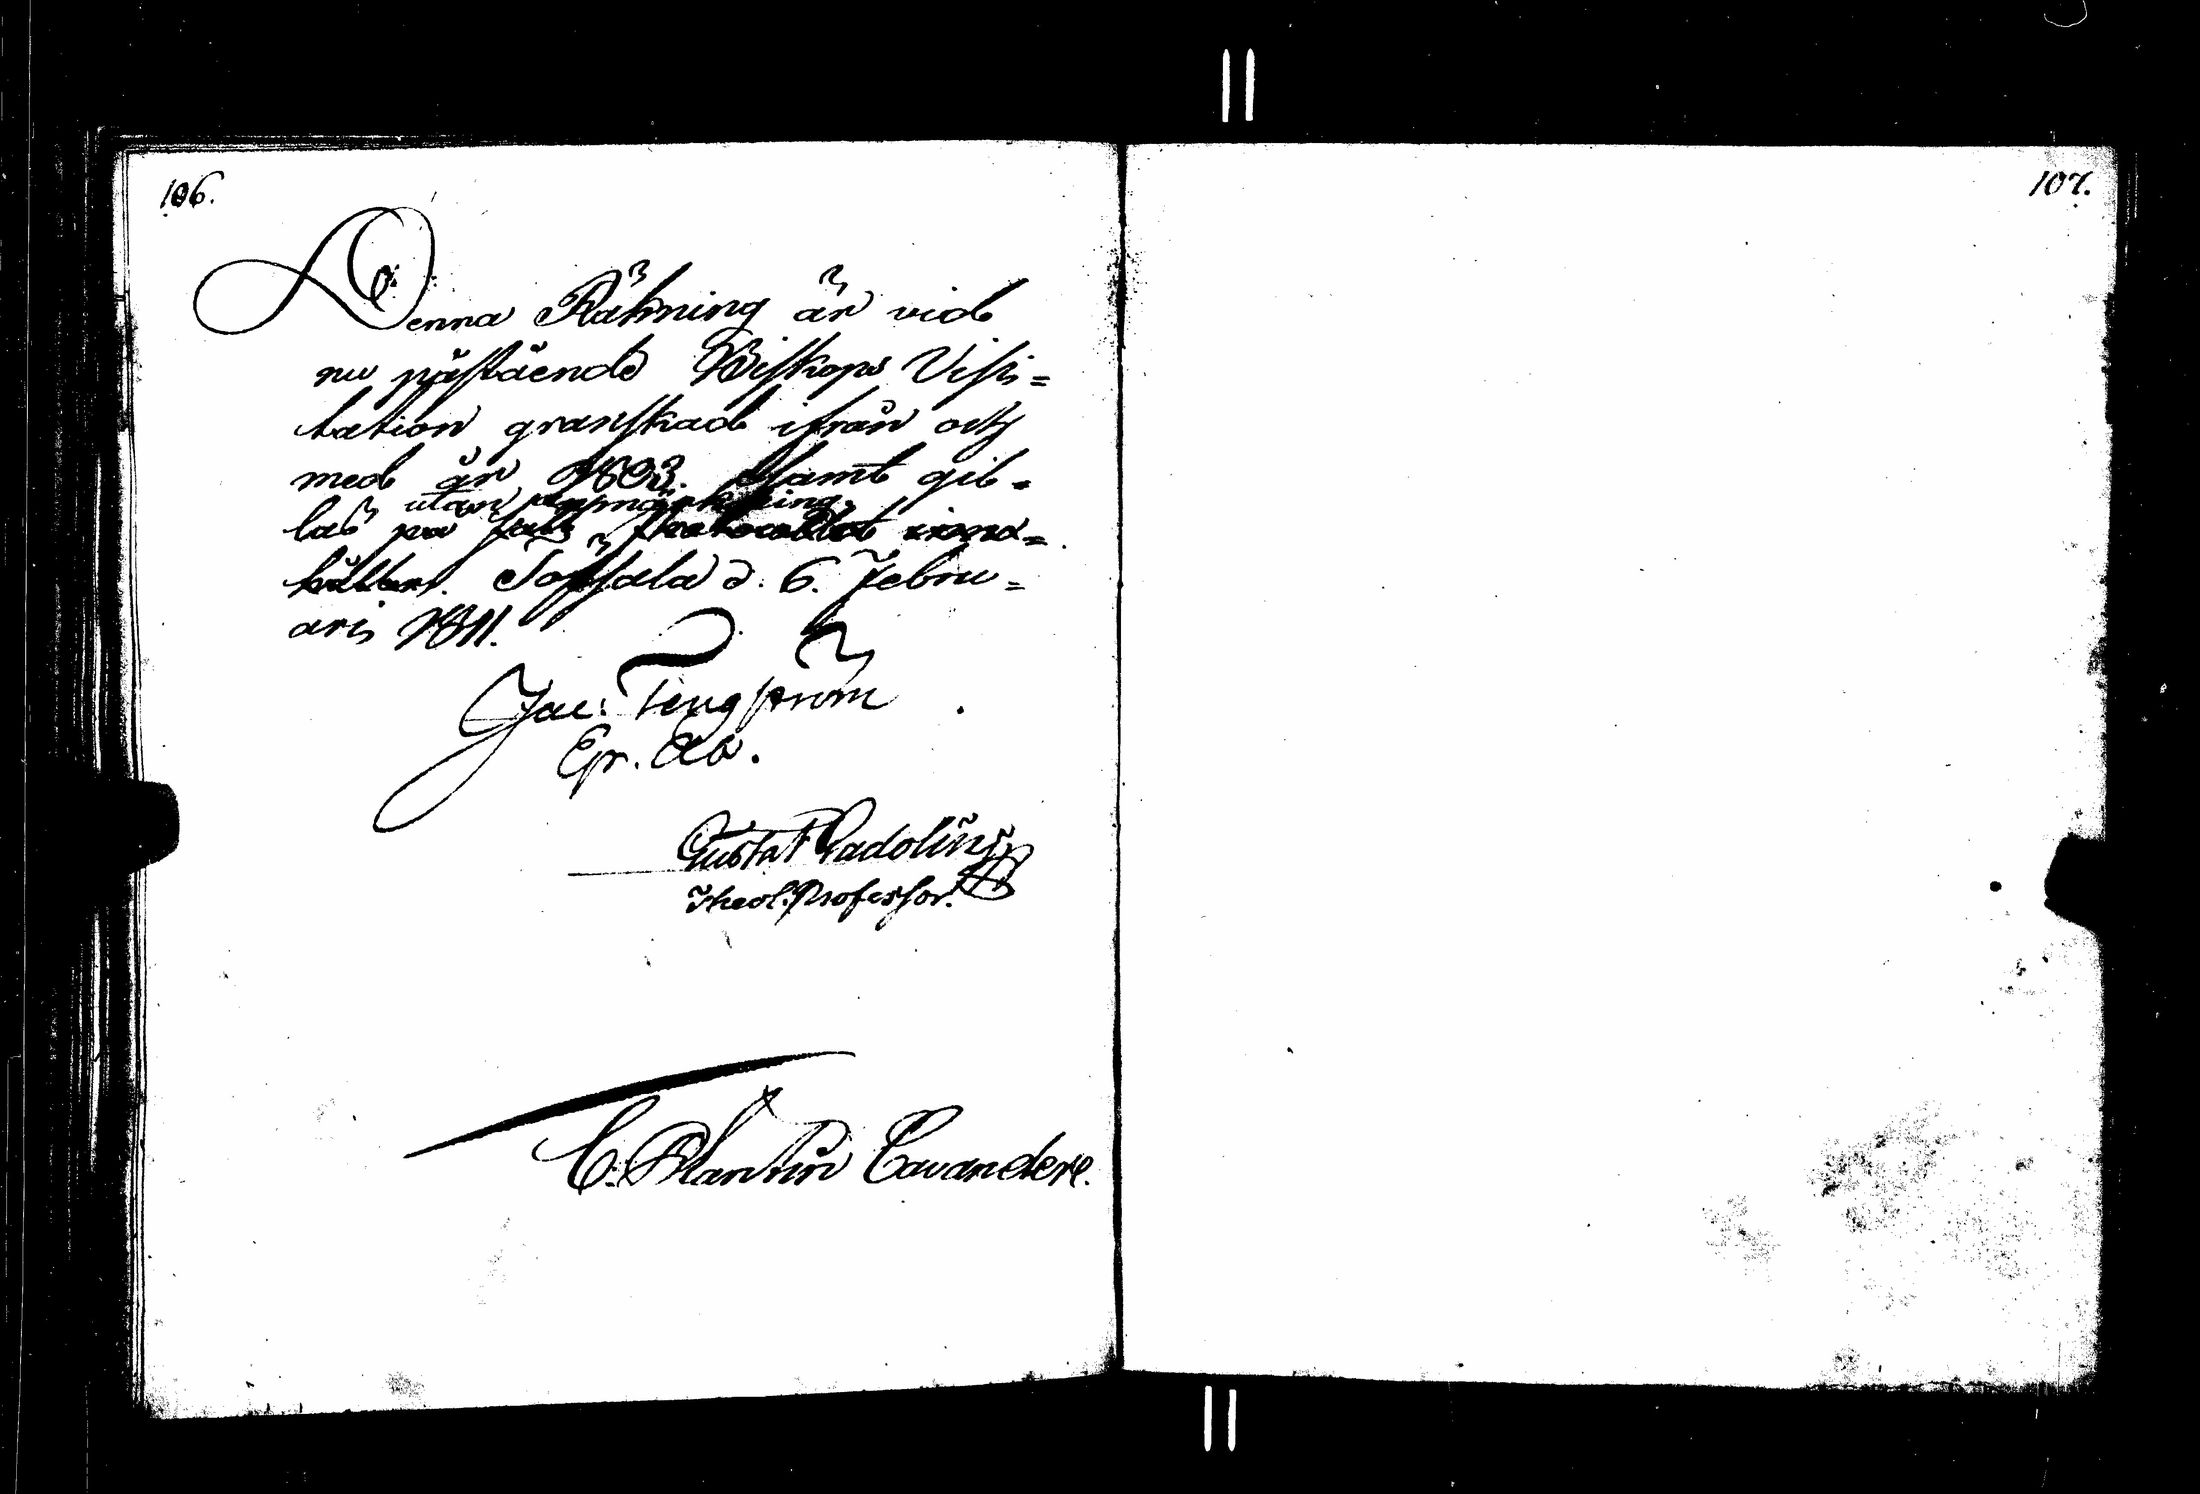 106.
Denna Räkning är vid
nu påstående Biskops Visi=
tation granskad ifrån och
med år 1803. samt gil=
utan anmärkning
lad på sätt Protocollet inne=
håller. Töfsala d. 6. Febru=
arii 1811.
Jac: Tengström
Ep. Ab.
Gustaf Gadolin
Theol. Professor.
C. Plantin Cavandere.
107.